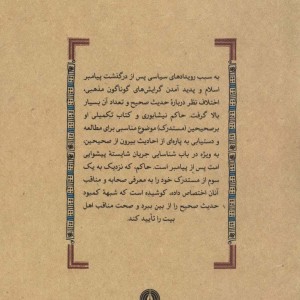 به سبب رویدادهای سیاسی پس از درگذشت پیامبر
اسلام و پدید آمدن گرایش‌های گوناگون مذهبی،
اختلاف نظر دربارهٔ حدیث صحیح و تعداد آن بسیار
بالا گرفت. حاکم نیشابوری و کتاب تکمیلی او
برصحیحین (مستدرک) موضوع مناسبی برای مطالعه
و دستیابی به پاره‌ای از احادیث بیرون از صحیحین،
به ویژه در باب شناسایی جریان شایستهٔ پیشوایی
امت پس از پیامبر است. حاکم، که نزدیک به یک
سوم از مستدرک خود را به معرفی صحابه و مناقب
آنان اختصاص داده، کوشیده است که شبههٔ کمبود
حدیث صحیح را از بین ببرد و صحت مناقب اهل
بیت را تأیید کند.